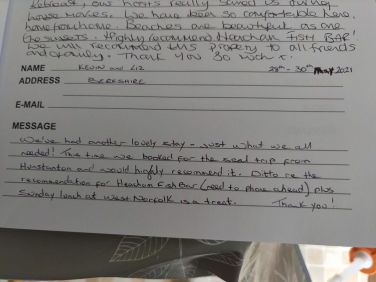 our hosts really saved us during
house moves. We have been so comfortable here,
home from home. Beaches are beautiful as are
the sunsets. Highly recommend Heacham FISH BAR!
We will recommend this property to all friends
and family. Thank you so much x.
NAME KEVIN and LIZ 28th - 30th May 2021
ADDRESS BERKSHIRE
E-MAIL
MESSAGE
We've had another lovely stay - just what we all
needed! This time we booked for the seal trip from
Hunstanton and would highly recommend it. Ditto re the
recommendation for Heacham Fish Bar (need to phone ahead) plus
Sunday lunch at West Norfolk is a treat. Thank you!